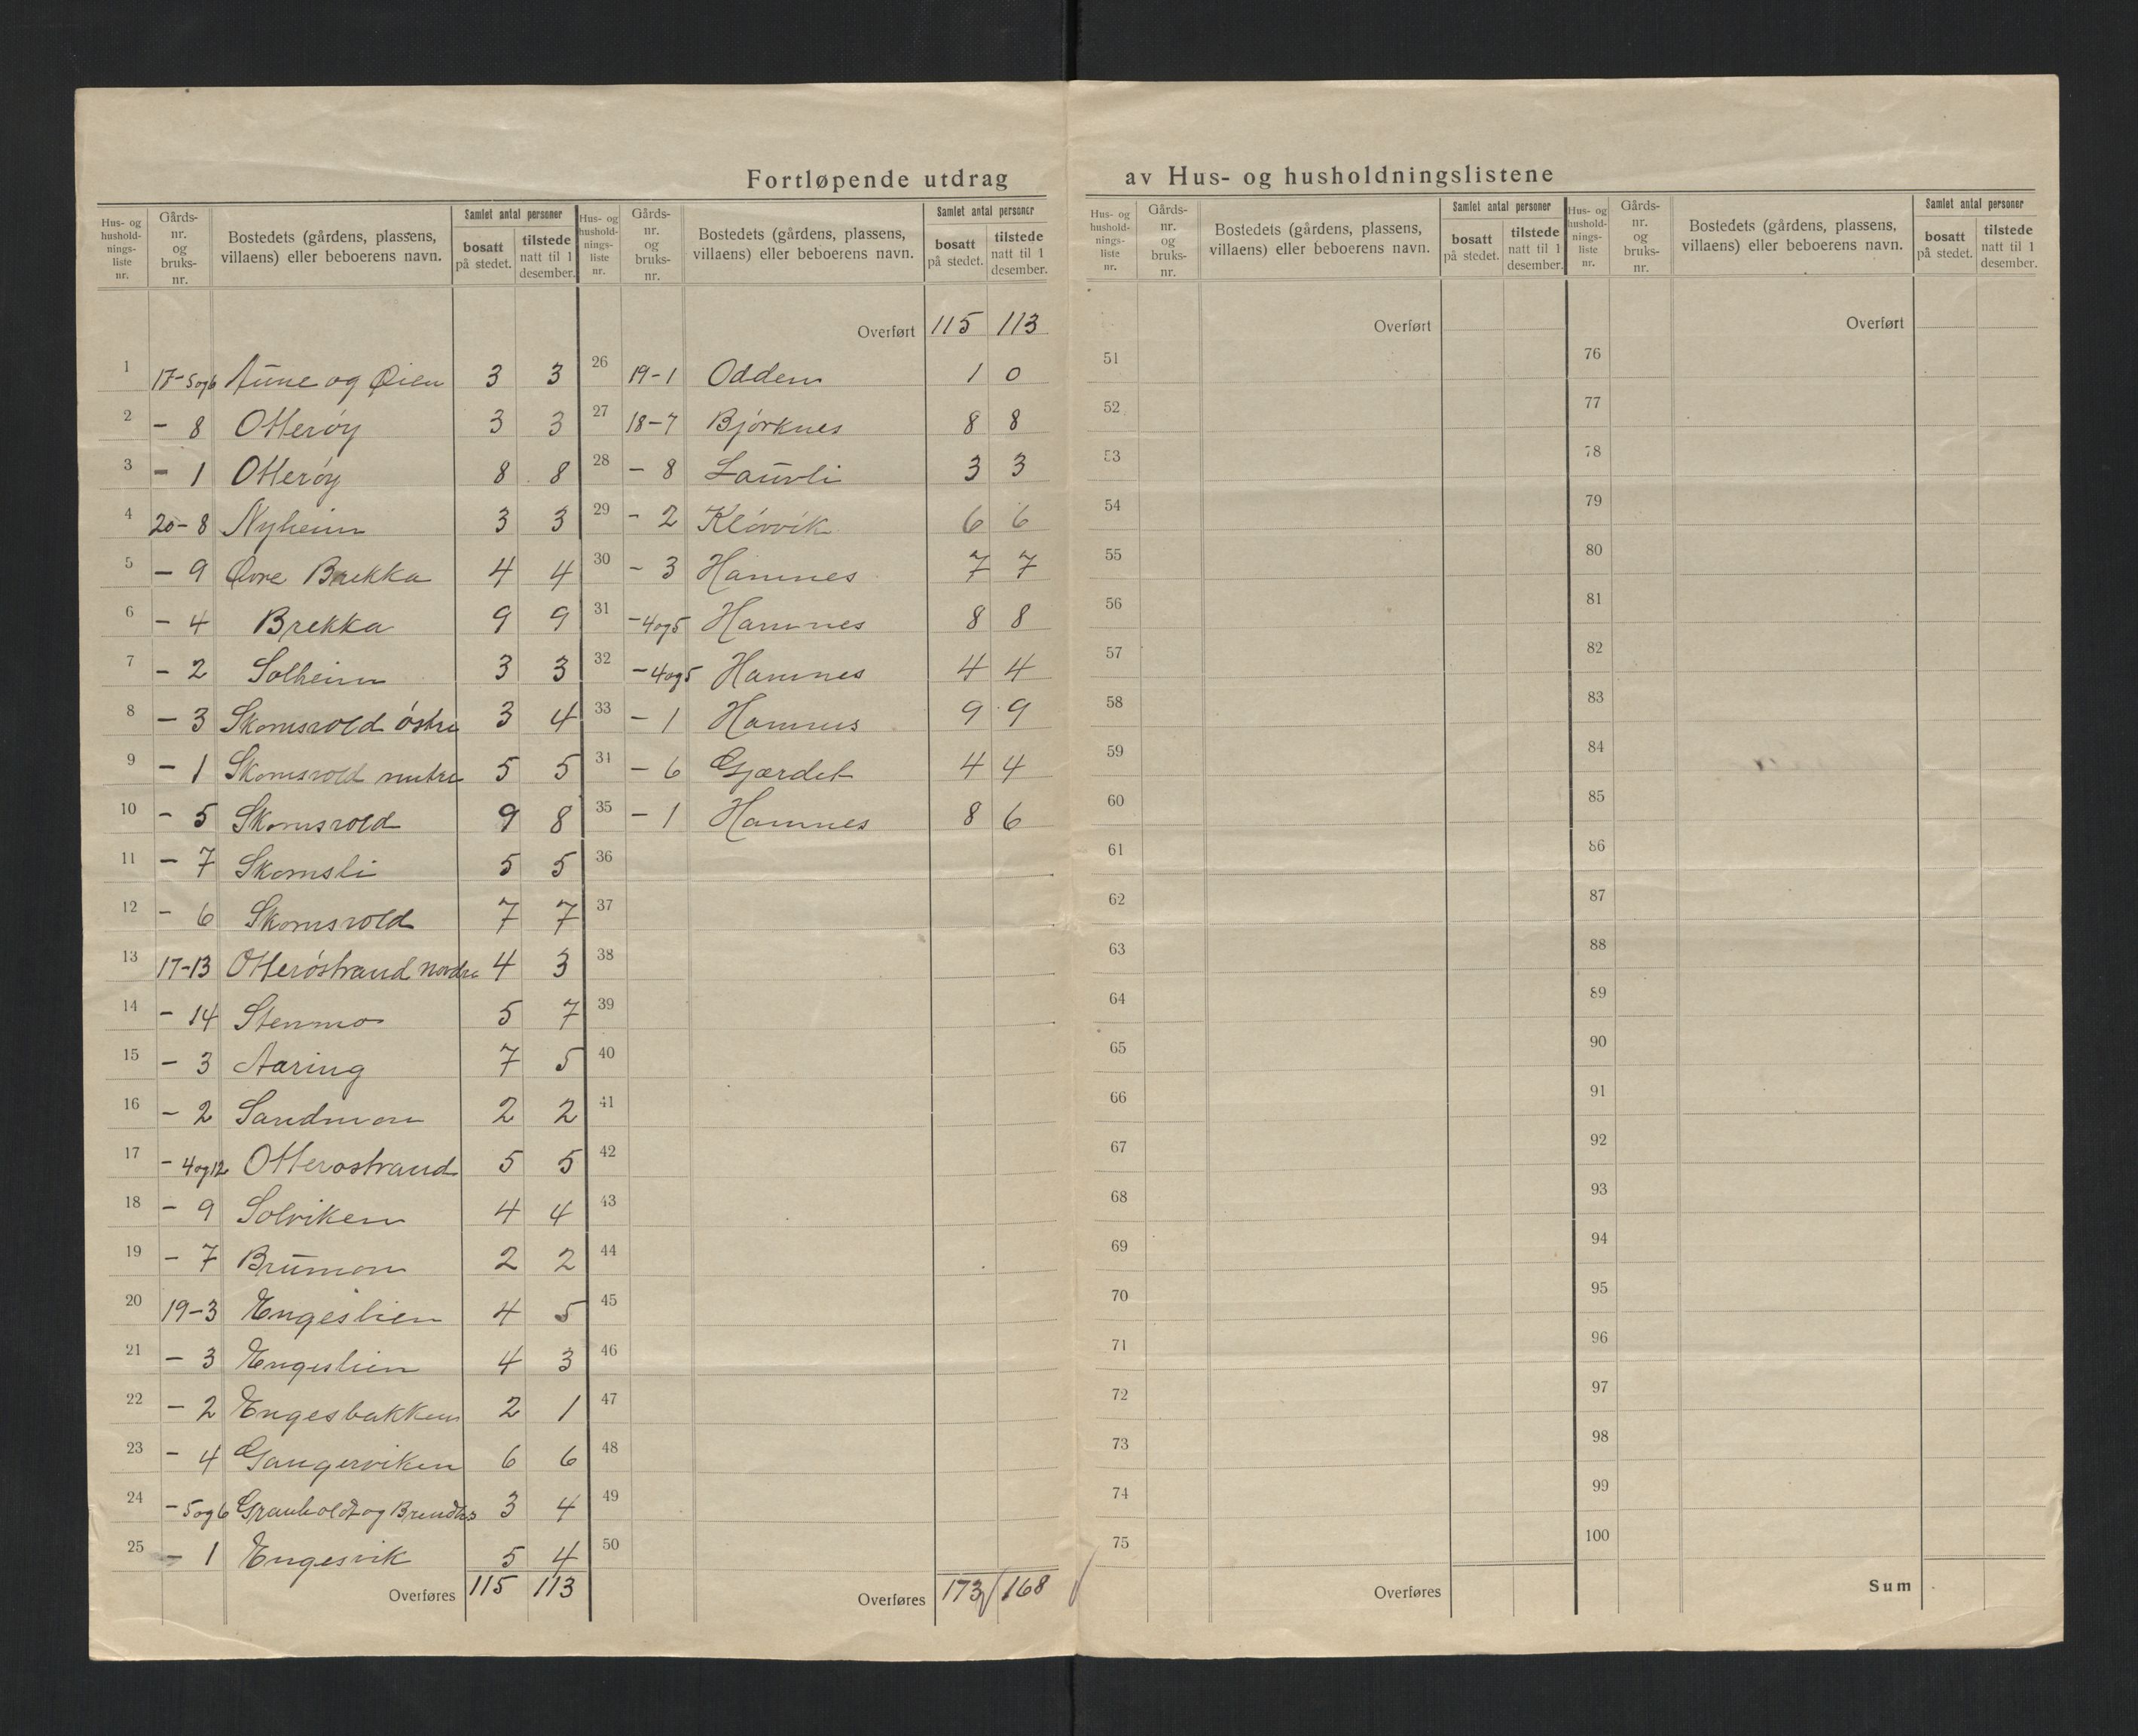 Fortløpende utdrag av Hus- og husholdningslistene
Hus- og hushold-nings-liste nr. Gårds-nr. og bruks-nr. Bostedets (gårdens, plassens, villaens) eller beboerens navn. Samlet antal personer bosatt på stedet. tilstede natt til 1 desember.
1 17-5og6 Aune og Øien 3 3
2 - 8 Otterøy 3 3
3 - 1 Otterøy 8 8
4 20-8 Nyheim 3 3
5 - 9 Øvre Brekka 4 4
6 - 4 Brekka 9 9
7 - 2 Solheim 3 3
8 - 3 Skomsvold östre 3 4
9 - 1 Skomsvold 5 5
10 - 5 Skomsvold 9 8
11 - 7 Skomsli 5 5
12 - 6 Skomsvold 7 7
13 17-13 Otteröstrand nordre 4 3
14 - 14 Stenmo 5 7
15 - 3 Aaring 7 5
16 - 2 Sandmon 2 2
17 - 4og12 Otterostrand 5 5
18 - 9 Solviken 4 4
19 - 7 Brumon 2 2
20 19-3 Engeslien 4 5
21 - 3 Engeslien 4 3
22 - 2 Engesbakken 2 1
23 - 4 Gangerviken 6 6
24 - 5og6 og 3 4
25 - 1 Engesvik 5 4
Overføres 115 113
Hus- og hushold-nings-liste nr. Gårds-nr. og bruks-nr. Bostedets (gårdens, plassens, villaens) eller beboerens navn. Samlet antal personer bosatt på stedet. tilstede natt til 1 desember.
Overført 115 113
26 19-1 Odden 1 0
27 18-7 Björknes 8 8
28 - 8 Lauvli 3 3
29 - 2 Klövvik 6 6
30 - 3 Hamnes 7 7
31 -4og5 Hamnes 8 8
32 -4og5 Hamnes 4 4
33 - 1 Hamnes 9 9
34 - 6 Gjærdet 4 4
35 - 1 Hamnes 8 6
36
37
38
39
40
41
42
43
44
45
46
47
48
49
50
Overføres 173 168
Hus- og hushold-nings-liste nr. Gårds-nr. og bruks-nr. Bostedets (gårdens, plassens, villaens) eller beboerens navn. Samlet antal personer bosatt på stedet. tilstede natt til 1 desember.
Overført
51
52
53
54
55
56
57
58
59
60
61
62
63
64
65
66
67
68
69
70
71
72
73
74
75
Overføres
Hus- og hushold-nings-liste nr. Gårds-nr. og bruks-nr. Bostedets (gårdens, plassens, villaens) eller beboerens navn. Samlet antal personer bosatt på stedet. tilstede natt til 1 desember.
Overført
76
77
78
79
80
81
82
83
84
85
86
87
88
89
90
91
92
93
94
95
96
97
98
99
100
Sum